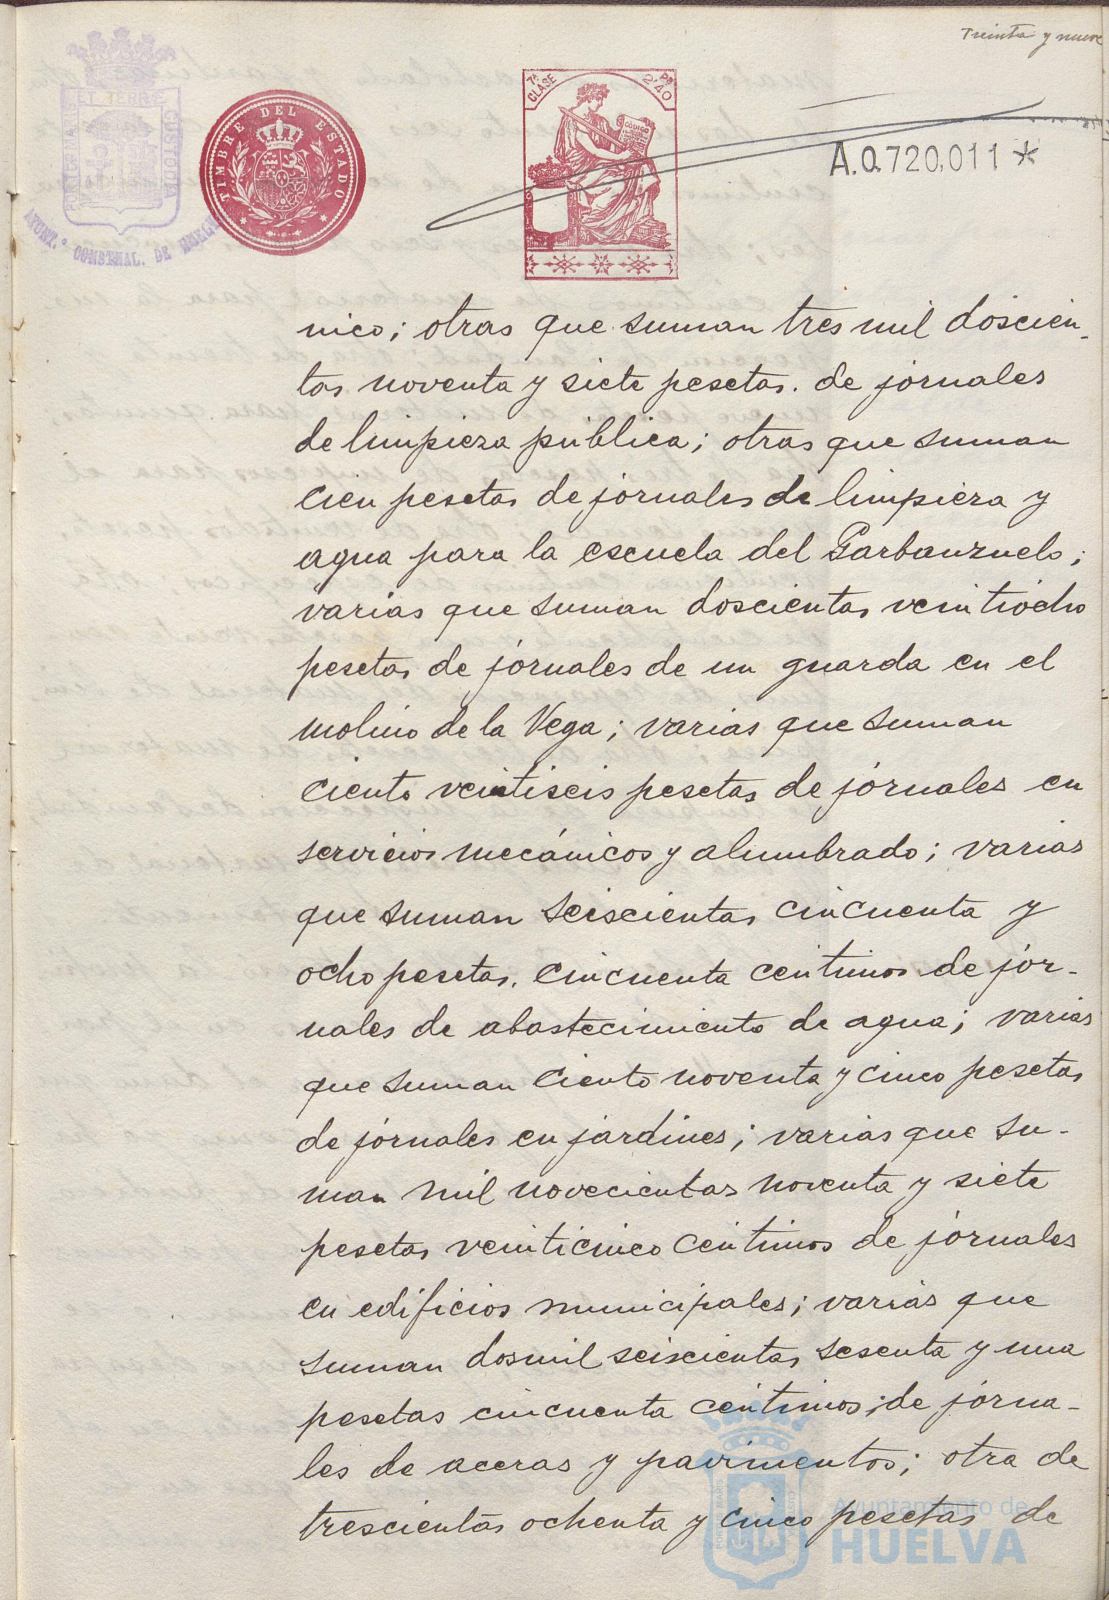 Treinta y nueve
PORTUS MARIS ET TERRE CUSTODIA
AYUNT.º CONSTNAL. DE HUELVA
TIMBRE DEL ESTADO
7ª CLASE
2'40 Ps
CODIGO
A.0.720,011 *
nico; otras que suman tres mil doscien-
tas noventa y siete pesetas. de jornales
de limpieza pública; otras que suman
cien pesetas de jornales de limpieza y
agua para la escuela del Garbanzuelo;
varias que suman doscientas veintiocho
pesetas de jornales de un guarda en el
molino de la Vega; varias que suman
ciento veintiseis pesetas de jornales en
servicios mecánicos y alumbrado; varias
que suman seiscientas cincuenta y
ocho pesetas. cincuenta centimos de jor-
nales de abastecimiento de agua; varias
que suman ciento noventa y cinco pesetas
de jornales en jardines; varias que su-
man mil novecientas noventa y siete
pesetas veinticinco centimos de jornales
en edificios municipales; varias que
suman dosmil seiscientas sesenta y una
pesetas cincuenta centimos; de jorna-
les de aceras y pavimentos; otra de
trescientas ochenta y cinco pesetas de
Ayuntamiento de
HUELVA